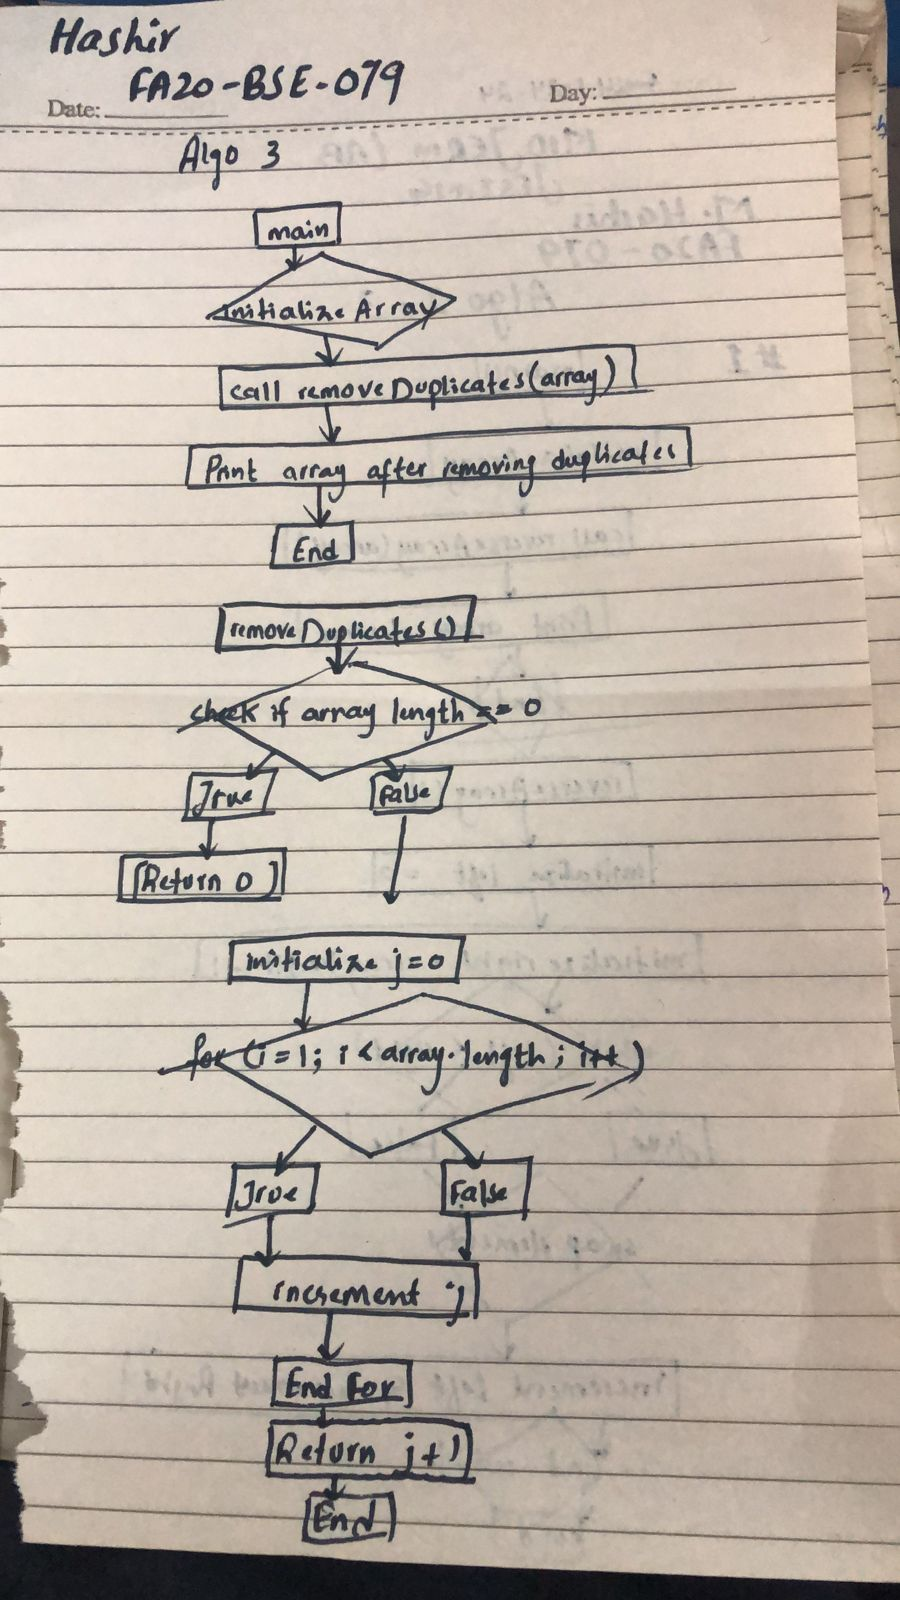 Hashir
FA20-BSE-079
Date:
Day:
Algo 3
main
initialize Array
call removeDuplicates(array)
Print array after removing duplicates
End
removeDuplicates()
check if array length == 0
True
False
Return 0
initialize j=0
for (i=1; i < array.length; i++)
True
False
increment j
End For
Return j+1
End